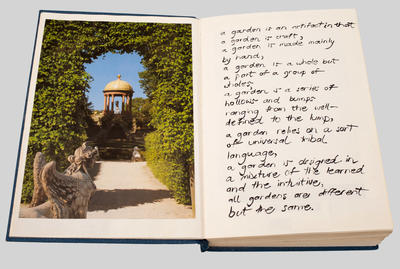 a garden is an artifact in that
a garden is craft,
a garden is made mainly
by hand,
a garden is a whole but
a part of a group of
wholes,
a garden is a series of
hollows and bumps
ranging from the well-
defined to the lump,
a garden relies on a sort
of universal tribal
language,
a garden is designed in
a mixture of the learned
and the intuitive,
all gardens are different
but the same.